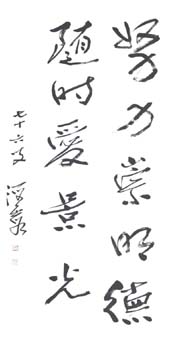 努力崇明德
随时爱景光
七十六叟